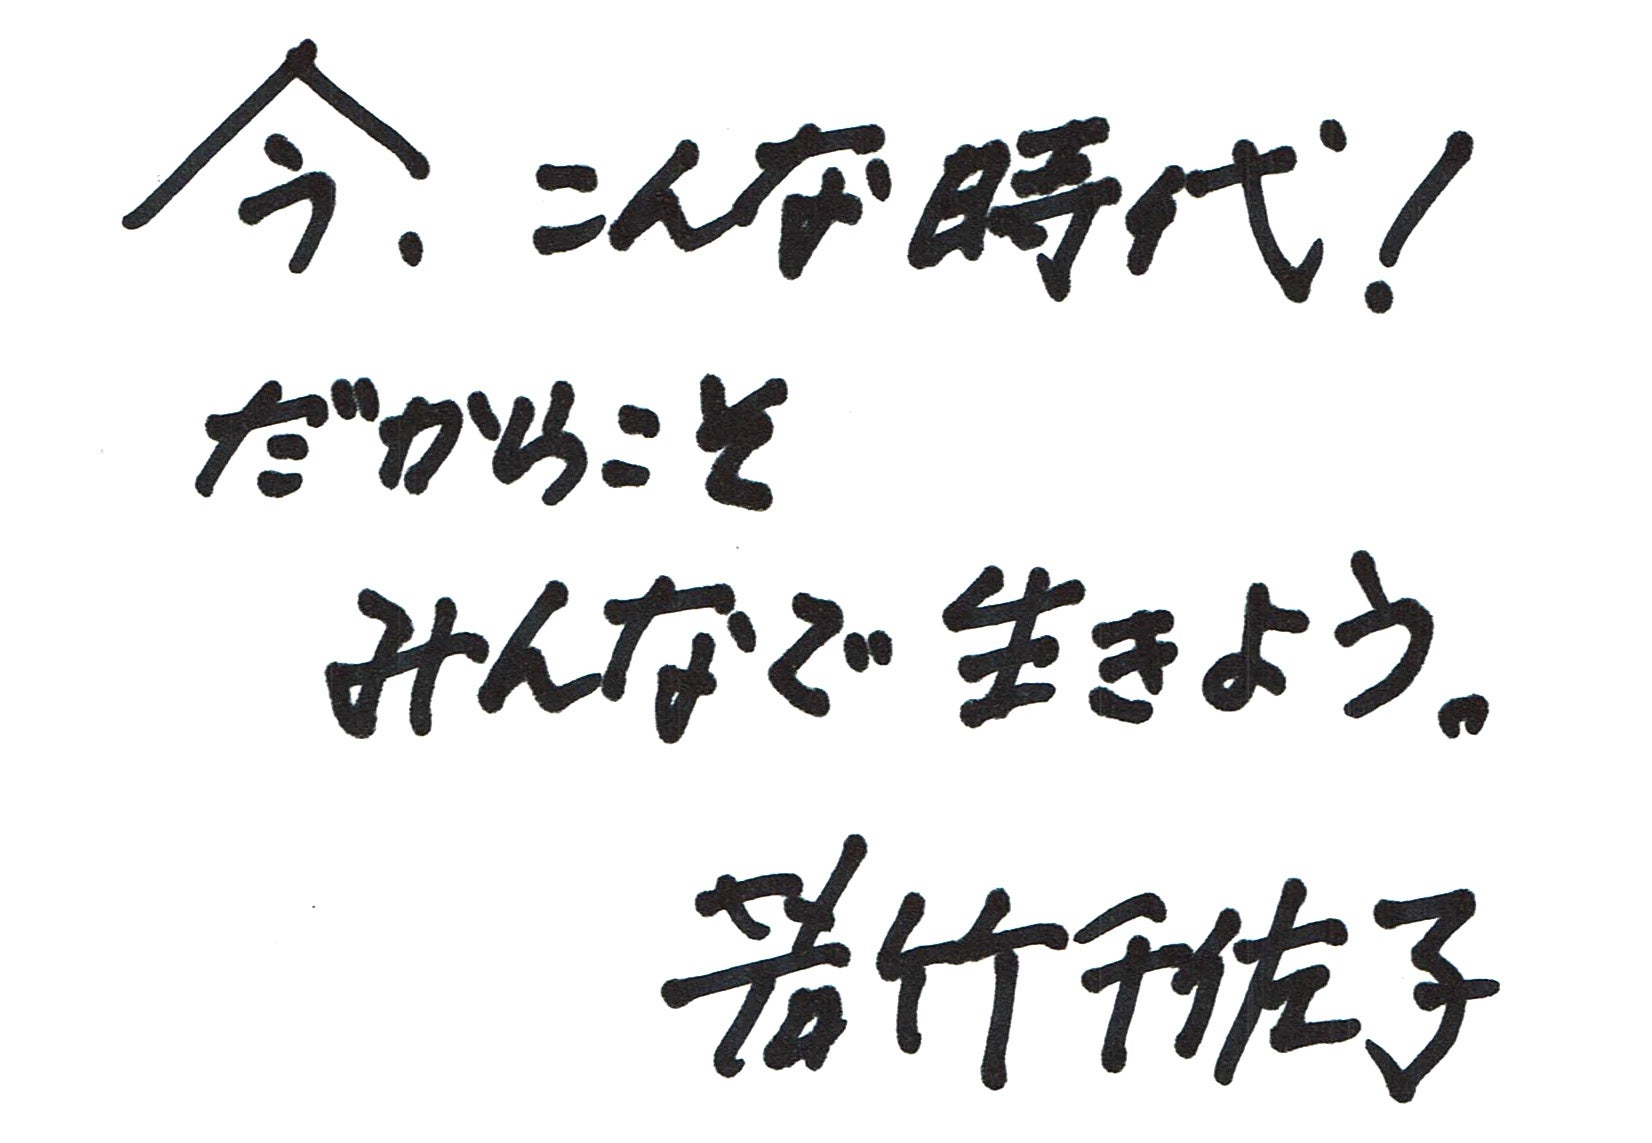 今、こんな時代！
だからこそ
みんなで生きよう。
若竹千佐子